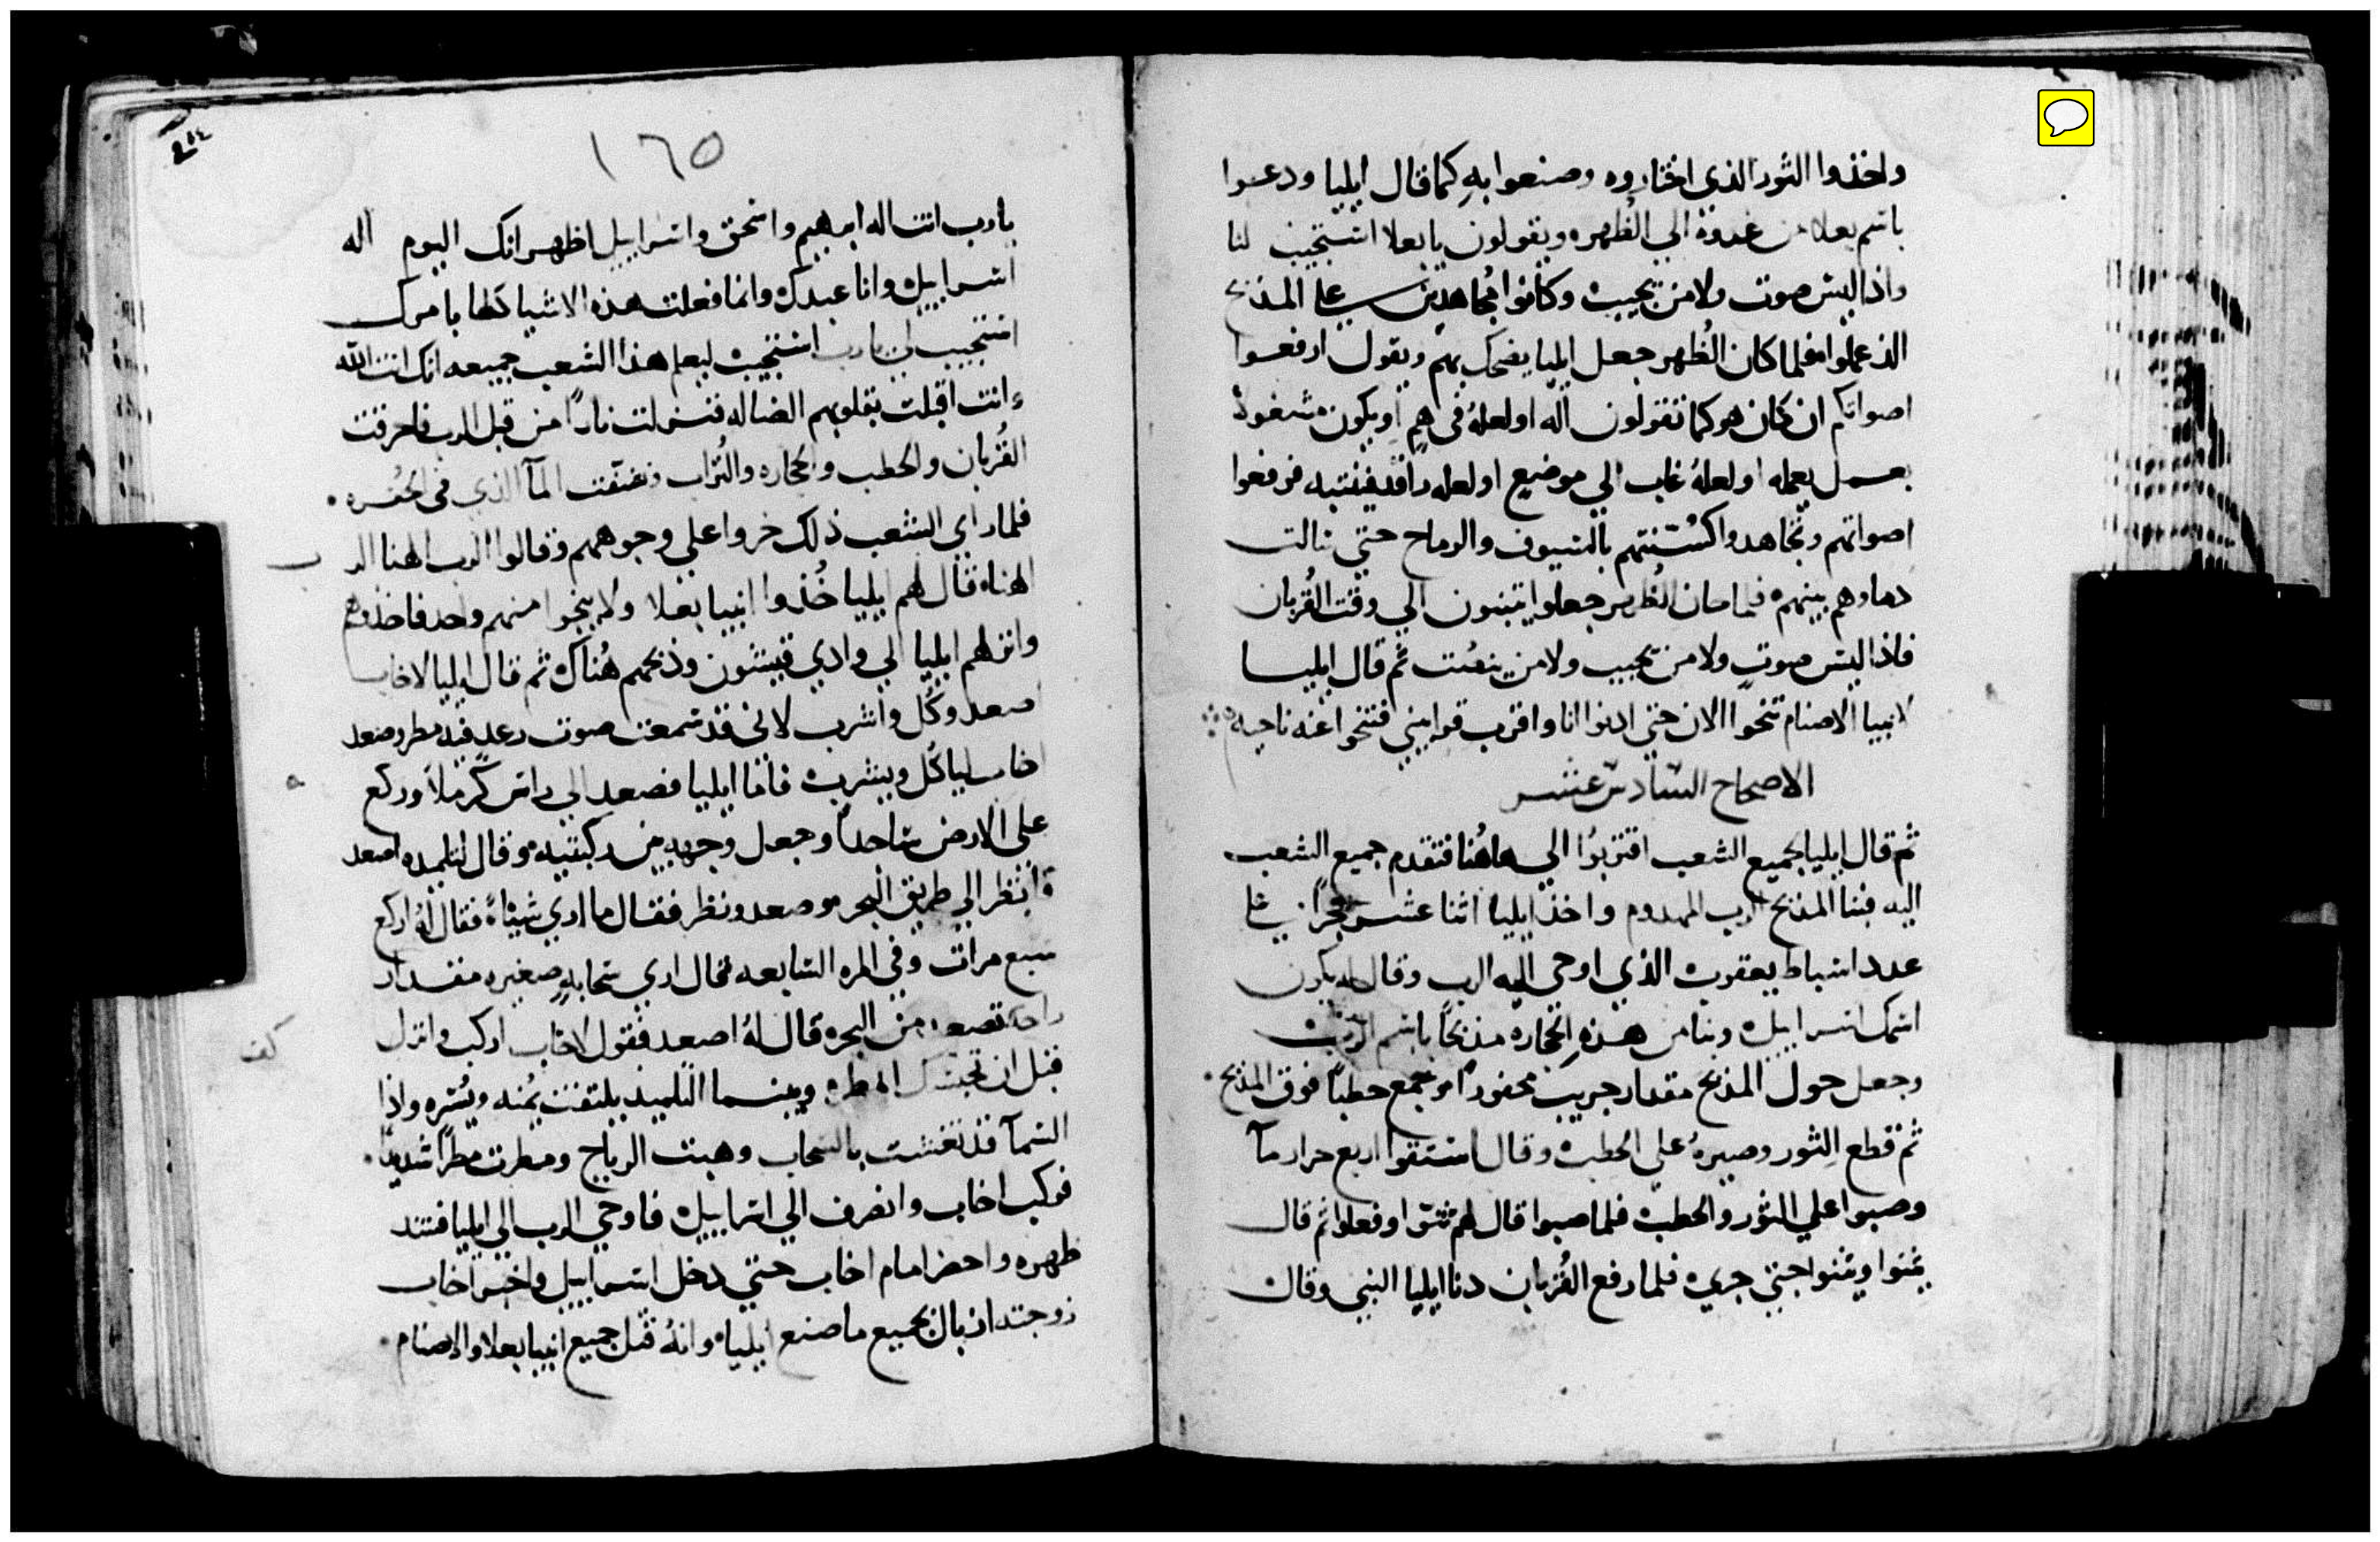 واخذوا الثور الذي اختاروه وصنعوا بهِ كما قال ايليا ودعوا
باسم بعلا من غدوة الي الظهره ويقولون يا بعلا استجيب لنا
واذا ليس صوت ولا من يجيب وكانوا مجاهدين علي المذبح
الذ عملوا فلما كان الظهر جعل ايليا يضحك بهم ويقول ارفعوا
اصواتكم ان كان هو كما تقولون اله او لعلهُ في هم او يكون مشغول
بعمل يعمله او لعلهُ غاب الي موضع او لعله راقد فينتبه فرفعوا
اصواتهم وتجاهدوا بالسيوف والرماح حتي نالت
دماوهم بينهم فلما الظهر جعلوا يتبنون الي وقت القُربان
فاذا ليس صوت ولا من يجيب ولا من ينصت ثم قال ايليا
لانبيا الاصنام تنحوا الان حتي ادنوا انا واقرب قرابيني فتنحوا عنه ناحيه
الاصحاح السادس عشر
ثم قال ايليا لجميع الشعب اقتربُوا الي هاهُنا فتقدم جميع الشعب
اليه فبنا المذبح الرب المهدوم واخذ ايليا اثنا عشر حجراً علي
عدد اسباط يعقوب الذي اوحي اليه الرب وقال له يكون
اسمك اسراييل وبنا من هذهِ الحجاره مذبحاً باسم الرب
وجعل حول المذبح مقدار جريب محفوراً وجمع حطباً فوق المذبح
ثم قطع الثور وصيرهُ علي الحطب وقال استقوا اربع جرار مآ
وصبوا علي الثور والحطب فلما صبوا قال لهم ثنوا وفعلوا ثم قال
ثمنوا وثمنوا حتي جري فلما رفع القُربان دنا ايليا النبي وقال
١٦٥
يا رب انت اله ابرهيم واسحق واسراييل اظهر انك اليوم اله
اسراييل وانا عبدك وانما فعلت هذه الاشيا كلها بامرك
استجيب لي يا رب استجيب ليعلم هذا الشعب جميعه انك انت الله
وانت اقبلت بقلوبهم الضاله فنزلت ناراً من قبل الرب فاحرقت
القُربان والحطب والحجاره والتُراب ونشفت المآ الذي في الحفره
فلما راي الشعب ذلك خروا علي وجوههم وقالوا الرب الهنا الرب
الهنا قال لهم ايليا خُذوا انبيا بعلا ولا ينجوا منهم واحد فاخذوهم
وانزلهم ايليا الي وادي قيشون وذبحهم هُناك ثم قال ايليا لاخاب
اصعد وكُل واشرب لاني قد سمعت صوت رعد فيه مطر وصعد
اخاب لياكُل ويشرب فاما ايليا فصعد الي راس كرملا وركع
علي الارض ساجداً وجعل وجهه بين ركبتيه وقال لتلميذه اصعد
وانظر الي طريق البحر وصعد ونظر فقال ما اري شيئاً فقال لهُ اركع
سبع مرات وفي المره السابعه فقال اري سحابه صغيره مقدار
راحه تصعد من البحر قال لهُ اصعد فقول لاخاب اركب وانزل
كف
قبل ان تحبسك المطره وبينما التلميذ يلتفت يُمنه ويُسره واذا
السمآ قد تغشت بالسحاب وهبت الرياح ومطرت مطراً شديداً
فركب اخاب وانصرف الي اسراييل فاوحي الرب الي ايليا فشد
ظهره واحضر امام اخاب حتي دخل اسراييل واخبر اخاب
زوجته ازبال بجميع ما صنع ايليا وانهُ قتل جميع انبيا بعلا والاصنام